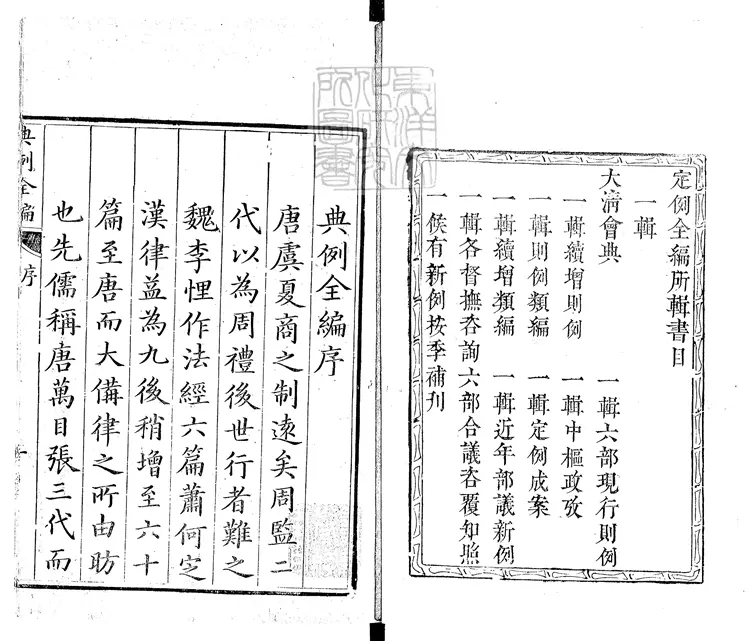 定例全編所輯書目
一輯
大淸會典　一輯六部現行則例
一輯續增則例　一輯中樞政攷
一輯則例類編　一輯定例成案
一輯續增類編　一輯近年部議新例
一輯各督撫咨詢六部合議咨覆知照
一候有新例按季補刋
東洋文化研究所圖書
典例全編序
唐虞夏商之制遠矣周監二
代以為周禮後世行者難之
魏李悝作法經六篇蕭何定
漢律益為九後稍增至六十
篇至唐而大備律之所由昉
也先儒稱唐萬目張三代而
典例全編　序　一